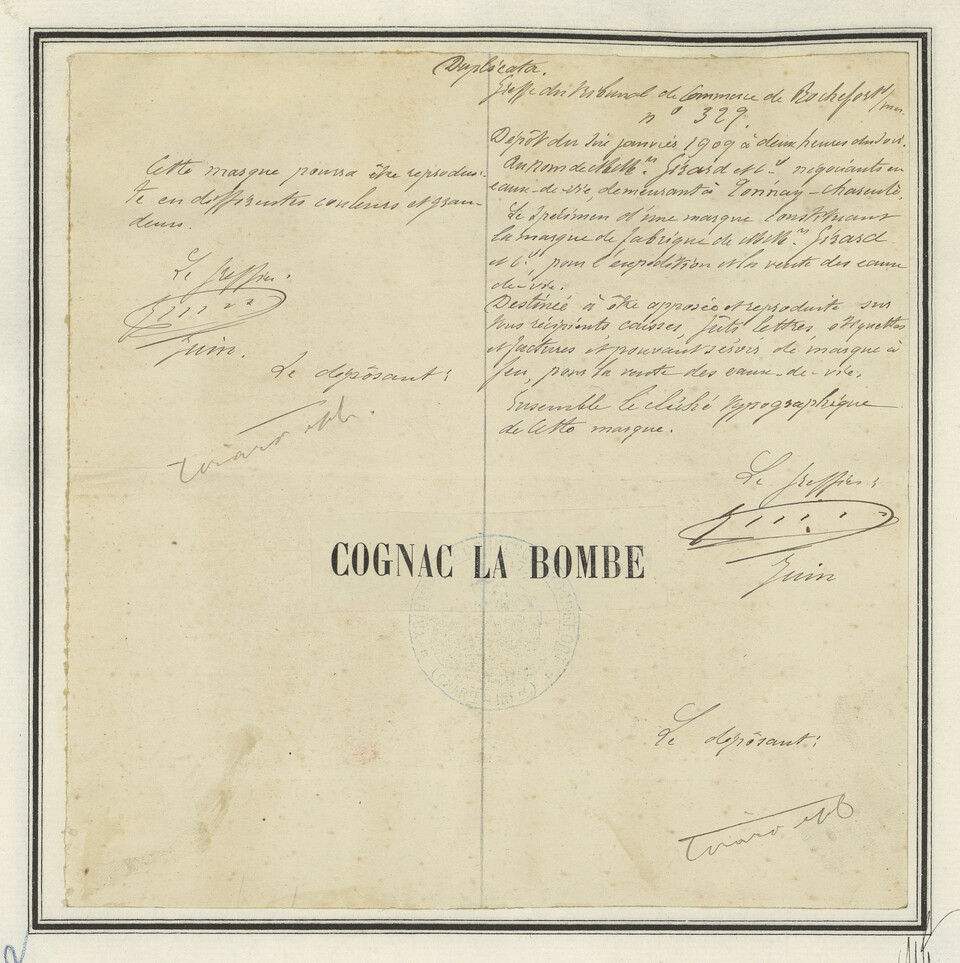 Duplicata.
Greffe du Tribunal de Commerce de Rochefort s/mer
n° 329.
Dépôt du janvier 1909 à deux heures du soir.
Au nom de MM.rs Girard et Cie négociants en
eaux-de-vie, demeurant à Tonnay-Charente,
Le Spécimen d'une marque Constituant
la marque de fabrique de MM.rs Girard
et Cie pour l'expédition et la vente des eaux
de-vie.
Destinée à être apposée et reproduite sur
tous récipients caisses, fûts lettres, étiquettes
et factures et pouvant servir de marque à
feu, pour la vente des eaux-de-vie.
Ensemble le cliché typographique
de Cette marque.
Le Greffier:
Juin
Cette marque pourra être reprodui-
te en différentes couleurs et gran-
deurs.
Le Greffier.
Juin.
Le déposant:
COGNAC LA BOMBE
Le déposant: